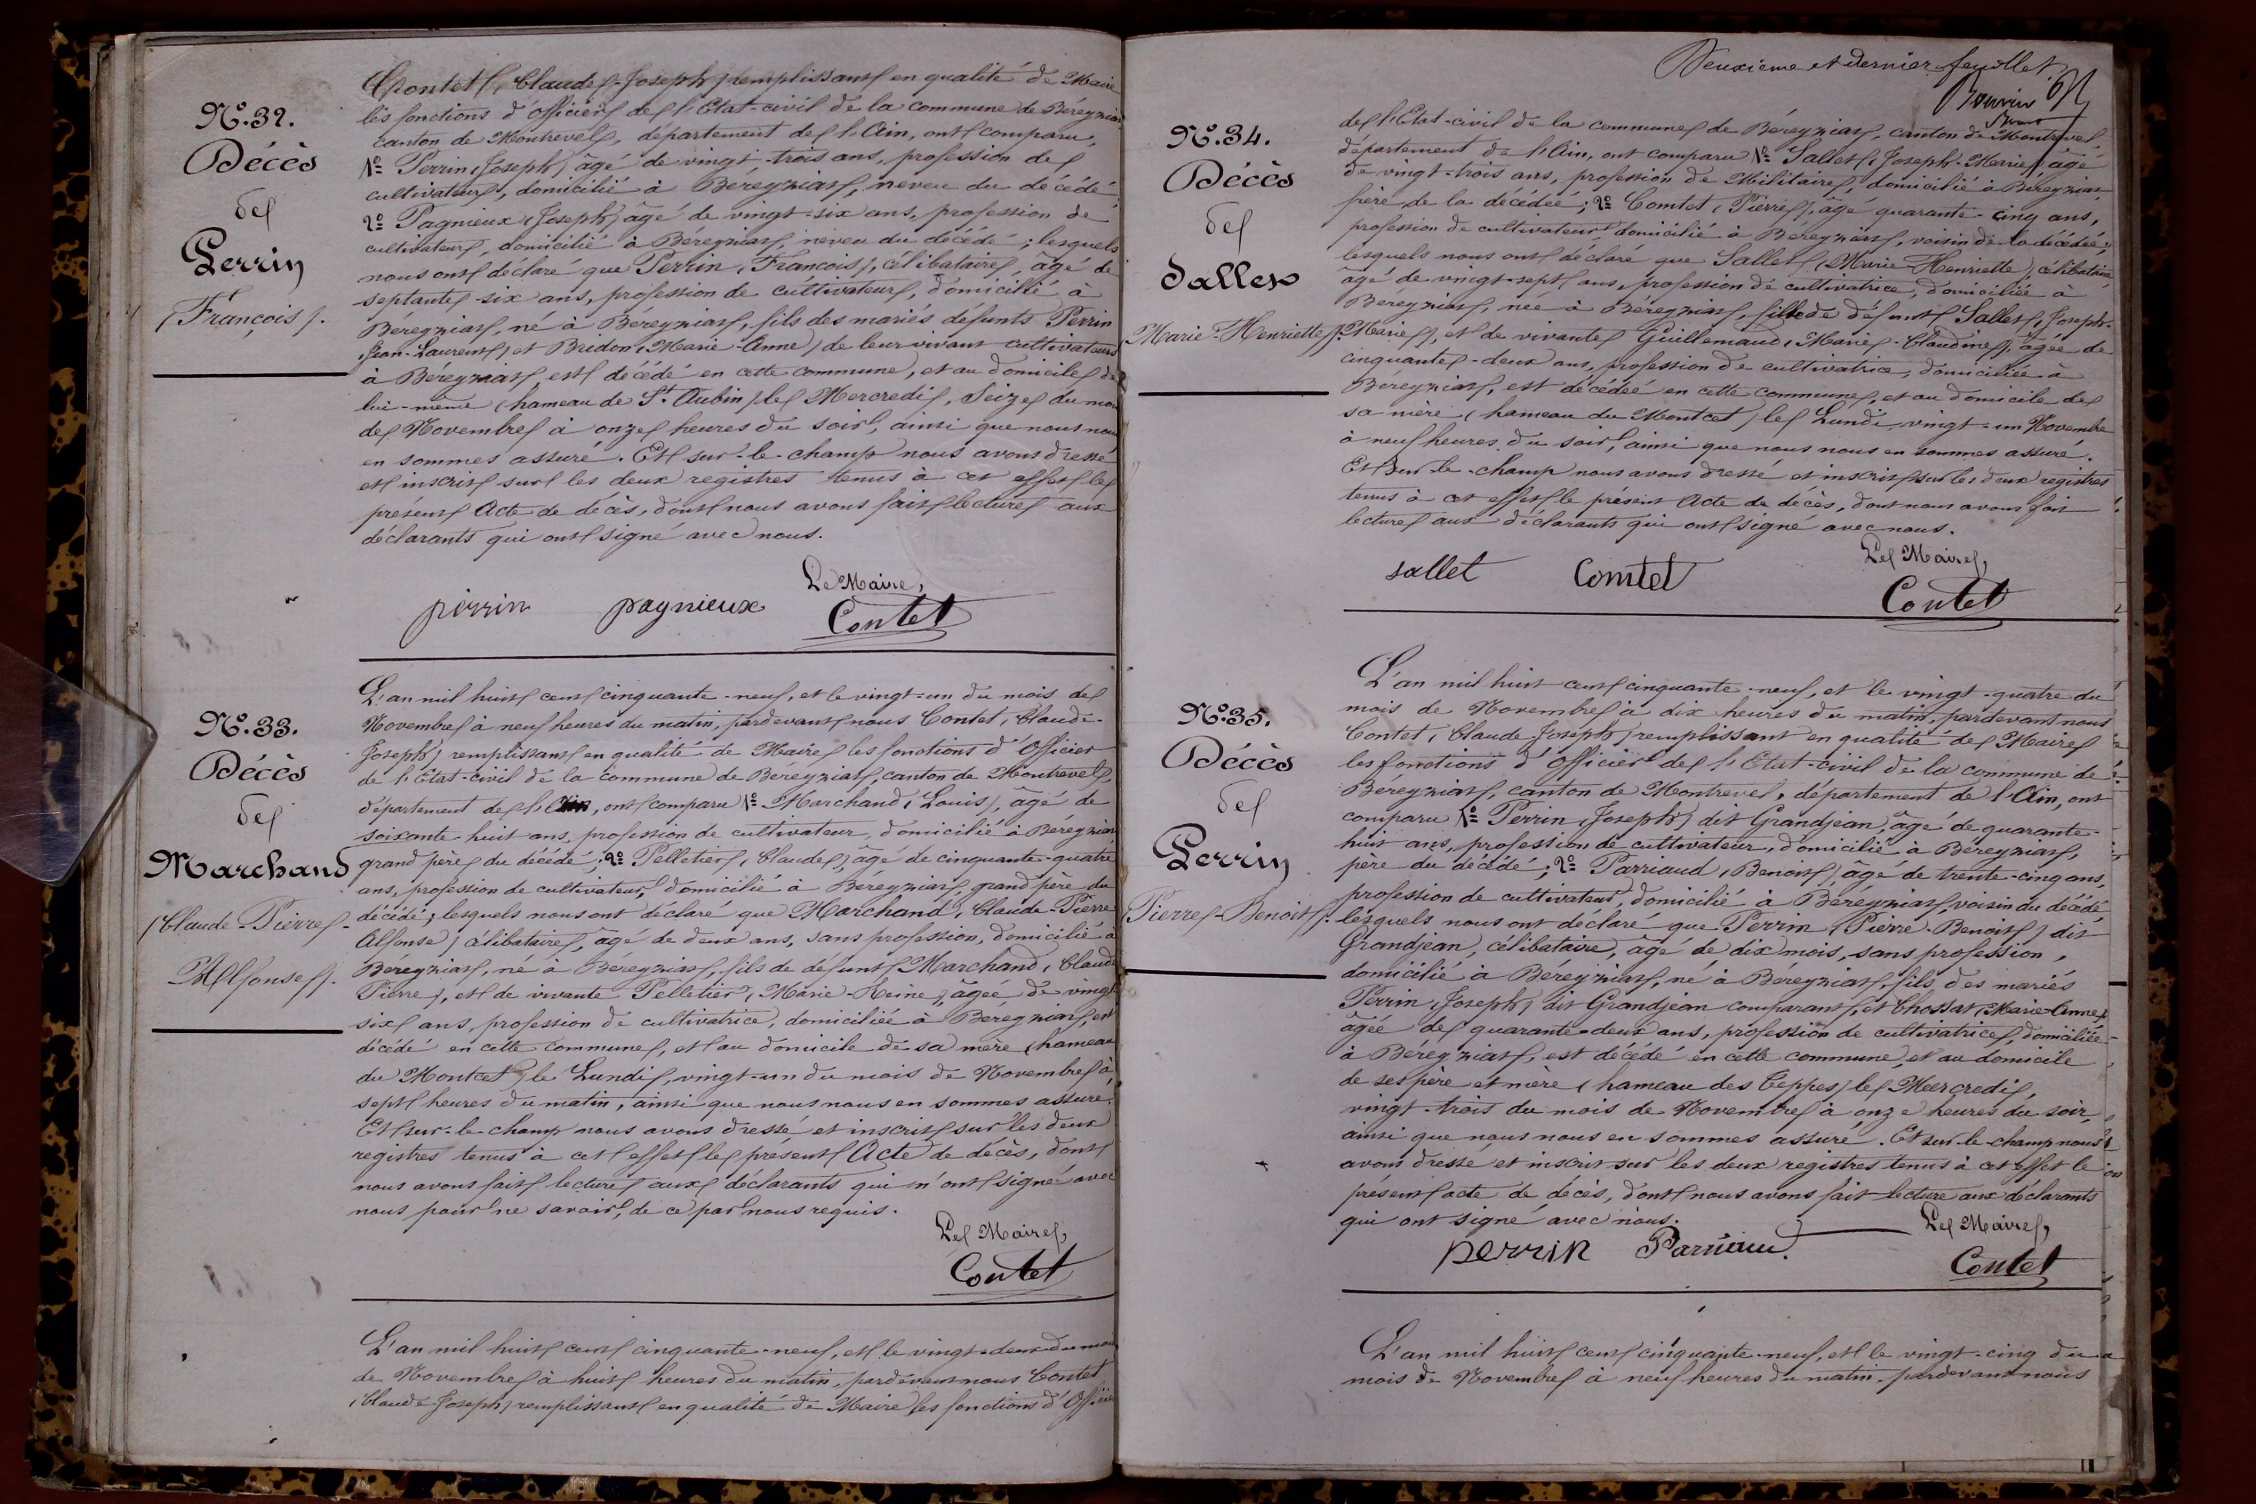 N.º 32.
Décès
de
Perrin
(François).
Contet (Claude-Joseph) remplissant en qualité de Maire
les fonctions d'officier de l'Etat-civil de la commune de Béréyziat
canton de Montrevel, département de l'Ain, ont comparu,
1º Perrin (Joseph) âgé de vingt-trois ans, profession de
cultivateur, domicilié à Béréyziat, neveu du décédé
2º Pagnieux (Joseph) âgé de vingt-six ans, profession de
cultivateur, domicilié à Béréyziat, neveu du décédé ; lesquels
nous ont déclaré que Perrin (François), célibataire, âgé de
septante-six ans, profession de cultivateur, domicilié à
Béréyziat, né à Béréyziat, fils des mariés défunts Perrin
(Jean-Laurent) et Bridon (Marie-Anne) de leur vivant cultivateurs
à Béréyziat, est décédé en cette commune, et au domicile de
lui-même (hameau de St. Aubin) le Mercredi, Seize du mois
de Novembre à onze heures du soir, ainsi que nous nous
en sommes assuré. Et sur-le-champ nous avons dressé
et inscrit sur les deux registres tenus à cet effet le
présent Acte de décès, dont nous avons fait lecture aux
déclarants qui ont signé avec nous.
Le Maire,
perrin pagnieux Contet
N.º 33.
Décès
de
Marchand
(Claude-Pierre-
Alfonse).
L'an mil huit cent cinquante-neuf, et le vingt-un du mois de
Novembre à neuf heures du matin, pardevant nous Contet (Claude-
Joseph) remplissant en qualité de Maire les fonctions d'Officier
de l'Etat-civil de la commune de Béréyziat, canton de Montrevel,
département de l'Ain, ont comparu 1º Marchand (Louis), âgé de
soixante-huit ans, profession de cultivateur, domicilié à Béréyziat
grand père du décédé ; 2º Pelletier (Claude), âgé de cinquante-quatre
ans, profession de cultivateur, domicilié à Béréyziat, grand père du
décédé ; lesquels nous ont déclaré que Marchand (Claude-Pierre
Alfonse) célibataire, âgé de deux ans, sans profession, domicilié à
Béréyziat, né à Béréyziat, fils de défunt Marchand (Claude
Pierre), et de vivante Pelletier (Marie-Reine), âgée de vingt
six ans, profession de cultivatrice, domiciliée à Béréyziat, est
décédé en cette commune, et au domicile de sa mère (hameau
du Montcet) le Lundi, vingt-un du mois de Novembre à
sept heures du matin, ainsi que nous nous en sommes assuré.
Et sur-le-champ nous avons dressé et inscrit sur les deux
registres tenus à cet effet le présent Acte de décès, dont
nous avons fait lecture aux déclarants qui n'ont signé avec
nous pour ne savoir, de ce par nous requis.
Le Maire,
Contet
L'an mil huit cent cinquante-neuf, et le vingt-deux du mois
de Novembre à huit heures du matin, pardevant nous Contet
(Claude-Joseph) remplissant en qualité de Maire les fonctions d'Officier
Deuxième et dernier feuillet.
N.º 34.
Décès
de
Sallet
Marie-Henriette).
de l'Etat-civil de la commune de Béréyziat, canton de Montrevel,
département de l'Ain, ont comparu 1º Sallet (Joseph-Marie), âgé
de vingt-trois ans, profession de Militaire, domicilié à Béréyziat,
frère de la décédée ; 2º Comtet (Pierre), âgé quarante-cinq ans,
profession de cultivateur domicilié à Béréyziat, voisin de la décédée ;
lesquels nous ont déclaré que Sallet (Marie-Henriette), célibataire
âgé de vingt-sept ans, profession de cultivatrice, domiciliée à
Béréyziat, née à Béréyziat, fille de défunt Sallet (Joseph-
Marie), et de vivante Guillemaud (Marie-Claudine), âgée de
cinquante-deux ans, profession de cultivatrice, domiciliée à
Béréyziat, est décédée en cette commune, et au domicile de
sa mère (hameau du Montcet) le Lundi vingt-un Novembre
à neuf heures du soir, ainsi que nous nous en sommes assuré.
Et sur-le-champ nous avons dressé et inscrit sur les deux registres
tenus à cet effet le présent Acte de décès, dont nous avons fait
lecture aux déclarants qui ont signé avec nous.
Le Maire,
sallet Comtet Contet
N.º 35.
Décès
de
Perrin
Pierre-Benoit).
L'an mil huit cent cinquante-neuf, et le vingt-quatre du
mois de Novembre à dix heures du matin, pardevant nous
Contet (Claude-Joseph) remplissant en qualité de Maire
les fonctions d'Officier de l'Etat-civil de la commune de
Béréyziat, canton de Montrevel, département de l'Ain, ont
comparu 1º Perrin (Joseph) dit Grandjean, âgé de quarante-
huit ans, profession de cultivateur, domicilié à Béréyziat,
père du décédé ; 2º Parriaud (Benoit) âgé de trente-cinq ans,
profession de cultivateur, domicilié à Béréyziat, voisin du décédé
lesquels nous ont déclaré que Perrin (Pierre-Benoit) dit
Grandjean, célibataire, âgé de dix mois, sans profession,
domicilié à Béréyziat, né à Béréyziat, fils des mariés
Perrin (Joseph) dit Grandjean comparant, et Chossat (Marie-Anne)
âgée de quarante-deux ans, profession de cultivatrice, domiciliée
à Béréyziat, est décédé en cette commune, et au domicile
de ses père et mère (hameau des Teppes) le Mercredi,
vingt-trois du mois de Novembre à onze heures du soir,
ainsi que nous nous en sommes assuré. Et sur-le-champ nous
avons dressé et inscrit sur les deux registres tenus à cet effet le
présent acte de décès, dont nous avons fait lecture aux déclarants
qui ont signé avec nous.
Le Maire,
perrin Parriau. Contet
L'an mil huit cent cinquante-neuf, et le vingt-cinq du
mois de Novembre à neuf heures du matin, pardevant nous